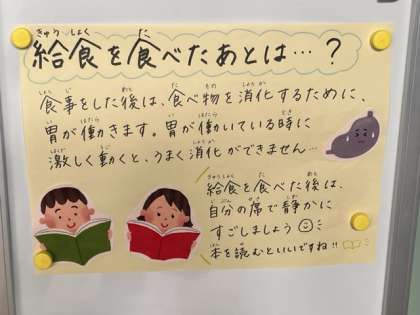 給食を食べたあとは…？
食事をした後は、食べ物を消化するために、
胃が働きます。胃が働いている時に
激しく動くと、うまく消化ができません…
給食を食べた後は、
自分の席で静かに
すごしましょう
本を読むといいですね!!